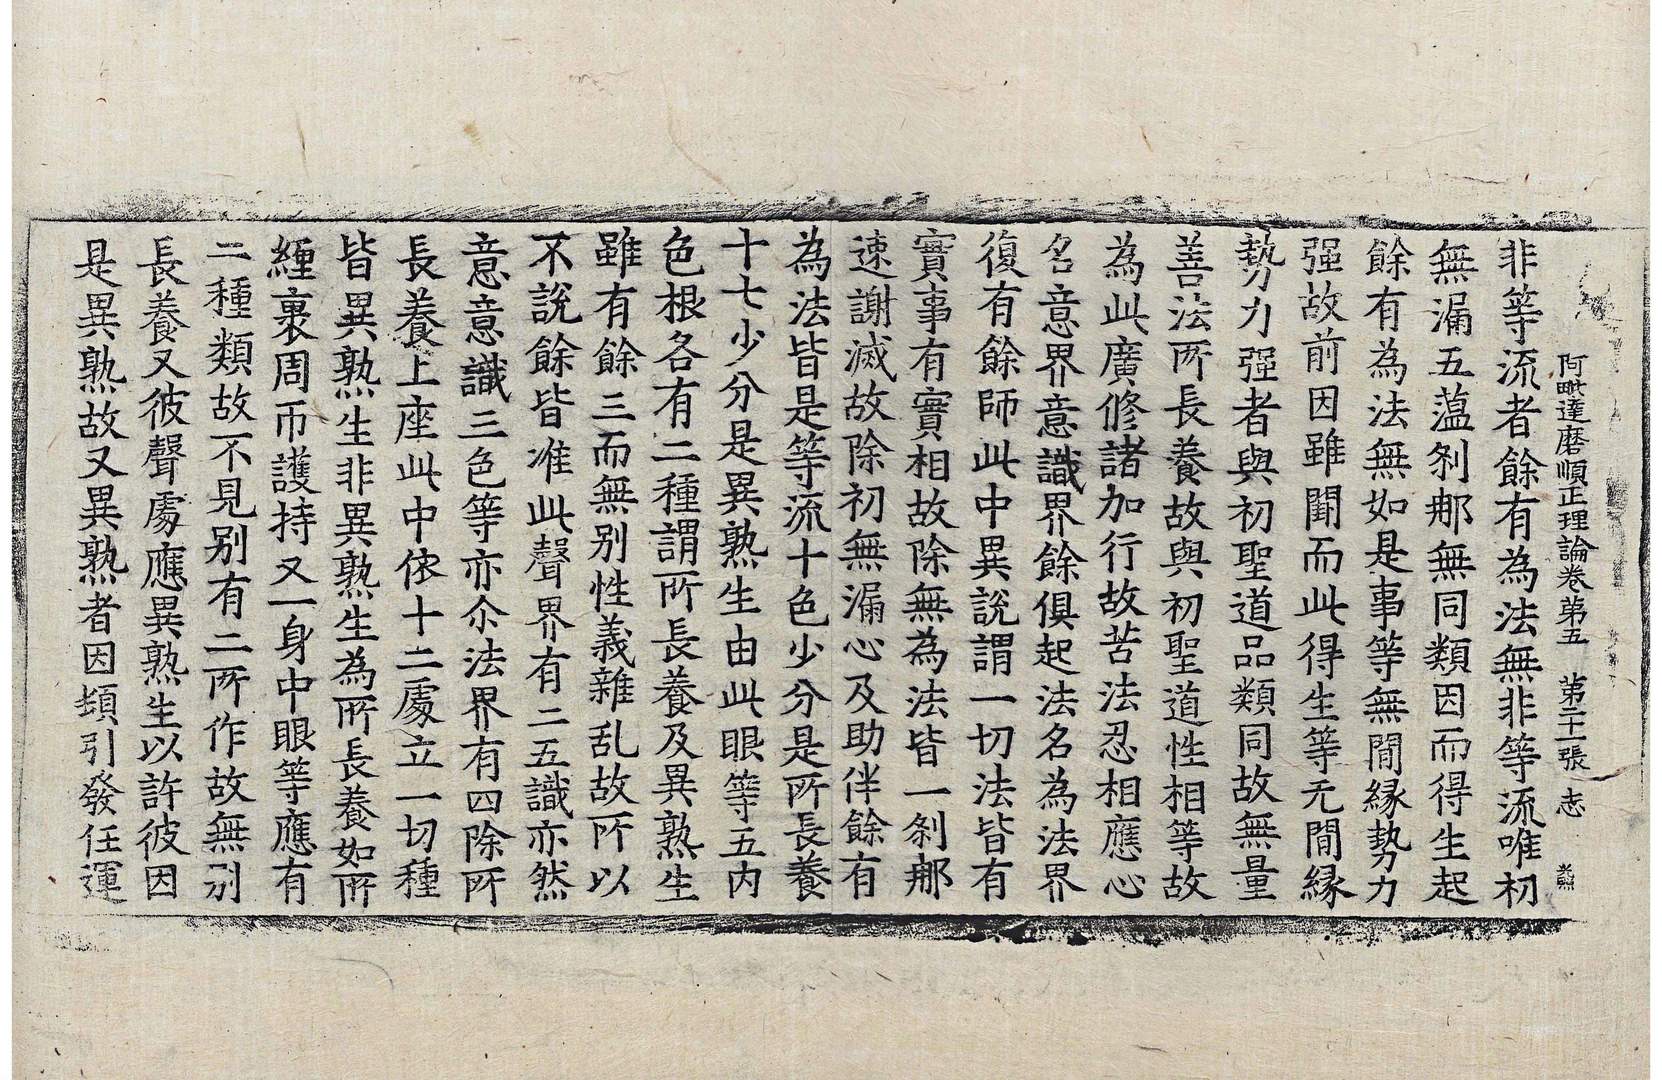 阿毗達磨順正理論卷第五　第二十一張　志
非等流者餘有為法無非等流唯初
無漏五薀刹那無同類因而得生起
餘有為法無如是事等無間緣勢力
强故前因雖闕而此得生等无間緣
勢力强者與初聖道品類同故無量
善法所長養故與初聖道性相等故
為此廣修諸加行故苦法忍相應心
名意界意識界餘俱起法名為法界
復有餘師此中異說謂一切法皆有
實事有實相故除無為法皆一刹那
速謝滅故除初無漏心及助伴餘有
為法皆是等流十色少分是所長養
十七少分是異熟生由此眼等五内
色根各有二種謂所長養及異熟生
雖有餘三而無别性義雜乱故所以
不說餘皆准此聲界有二五識亦然
意意識三色等亦尒法界有四除所
長養上座此中依十二處立一切種
皆異熟生非異熟生為所長養如所
纏裹周帀護持又一身中眼等應有
二種類故不見别有二所作故無别
長養又彼聲處應異熟生以許彼因
是異熟故又異熟者因類引發任運